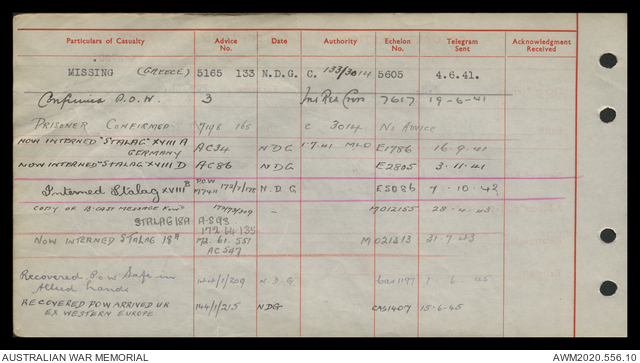 Particulars of Casualty Advice No. Date Authority Echelon No. Telegram Sent Acknowledgment Received
MISSING (GREECE) 5165 133 N.D.G. C. 133/3014 5605 4.6.41.
Confirmed P.O.W. 3 Int Red Cross 7617 19-6-41
PRISONER CONFIRMED 7198 165 C 3014 No Advice
NOW INTERNED "STALAG" XVIII A AC34 NDG 1.7.41 E1786 16.9.41
GERMANY
NOW INTERNED "STALAG" XVIII D AC86 NDG E2805 3.11.41
Interned Stalag XVIII B POW 172/1/178 N.D.G E5086 7.10.42
COPY OF B-CAST MESSAGE – M012155 28.4.43
STALAG 18A A.893
172.64.135
NOW INTERNED STALAG 18A 172.61.551 M021313 31.7.43
AC 547
Recovered Pow Safe in 144/1/209 N.D.G 1.6.45
Allied hands
RECOVERED POW ARRIVED UK 144/1/215 NDG CAS1407 15.6.45
EX WESTERN EUROPE
AUSTRALIAN WAR MEMORIAL AWM2020.556.10